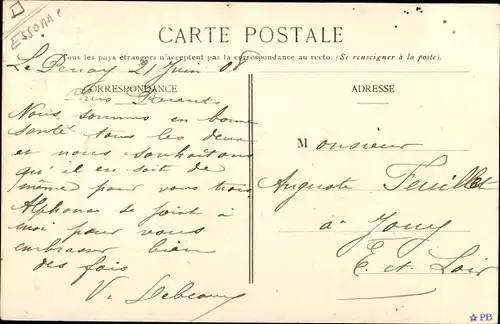 ESSONNE
CARTE POSTALE
Tous les pays étrangers n'acceptent pas la correspondance au recto. (Se renseigner à la poste).
Le 21 Juin 08
CORRESPONDANCE
Chers Parents
Nous sommes en bonne
santé tous les deux
et nous souhaitons
qu'il en soit de
même pour vous trois
Alphonse se joint à
moi pour vous
embrasser bien
des fois
V.
ADRESSE
Monsieur
Auguste Feuillet
à Jouy
E. et Loir
☆PB